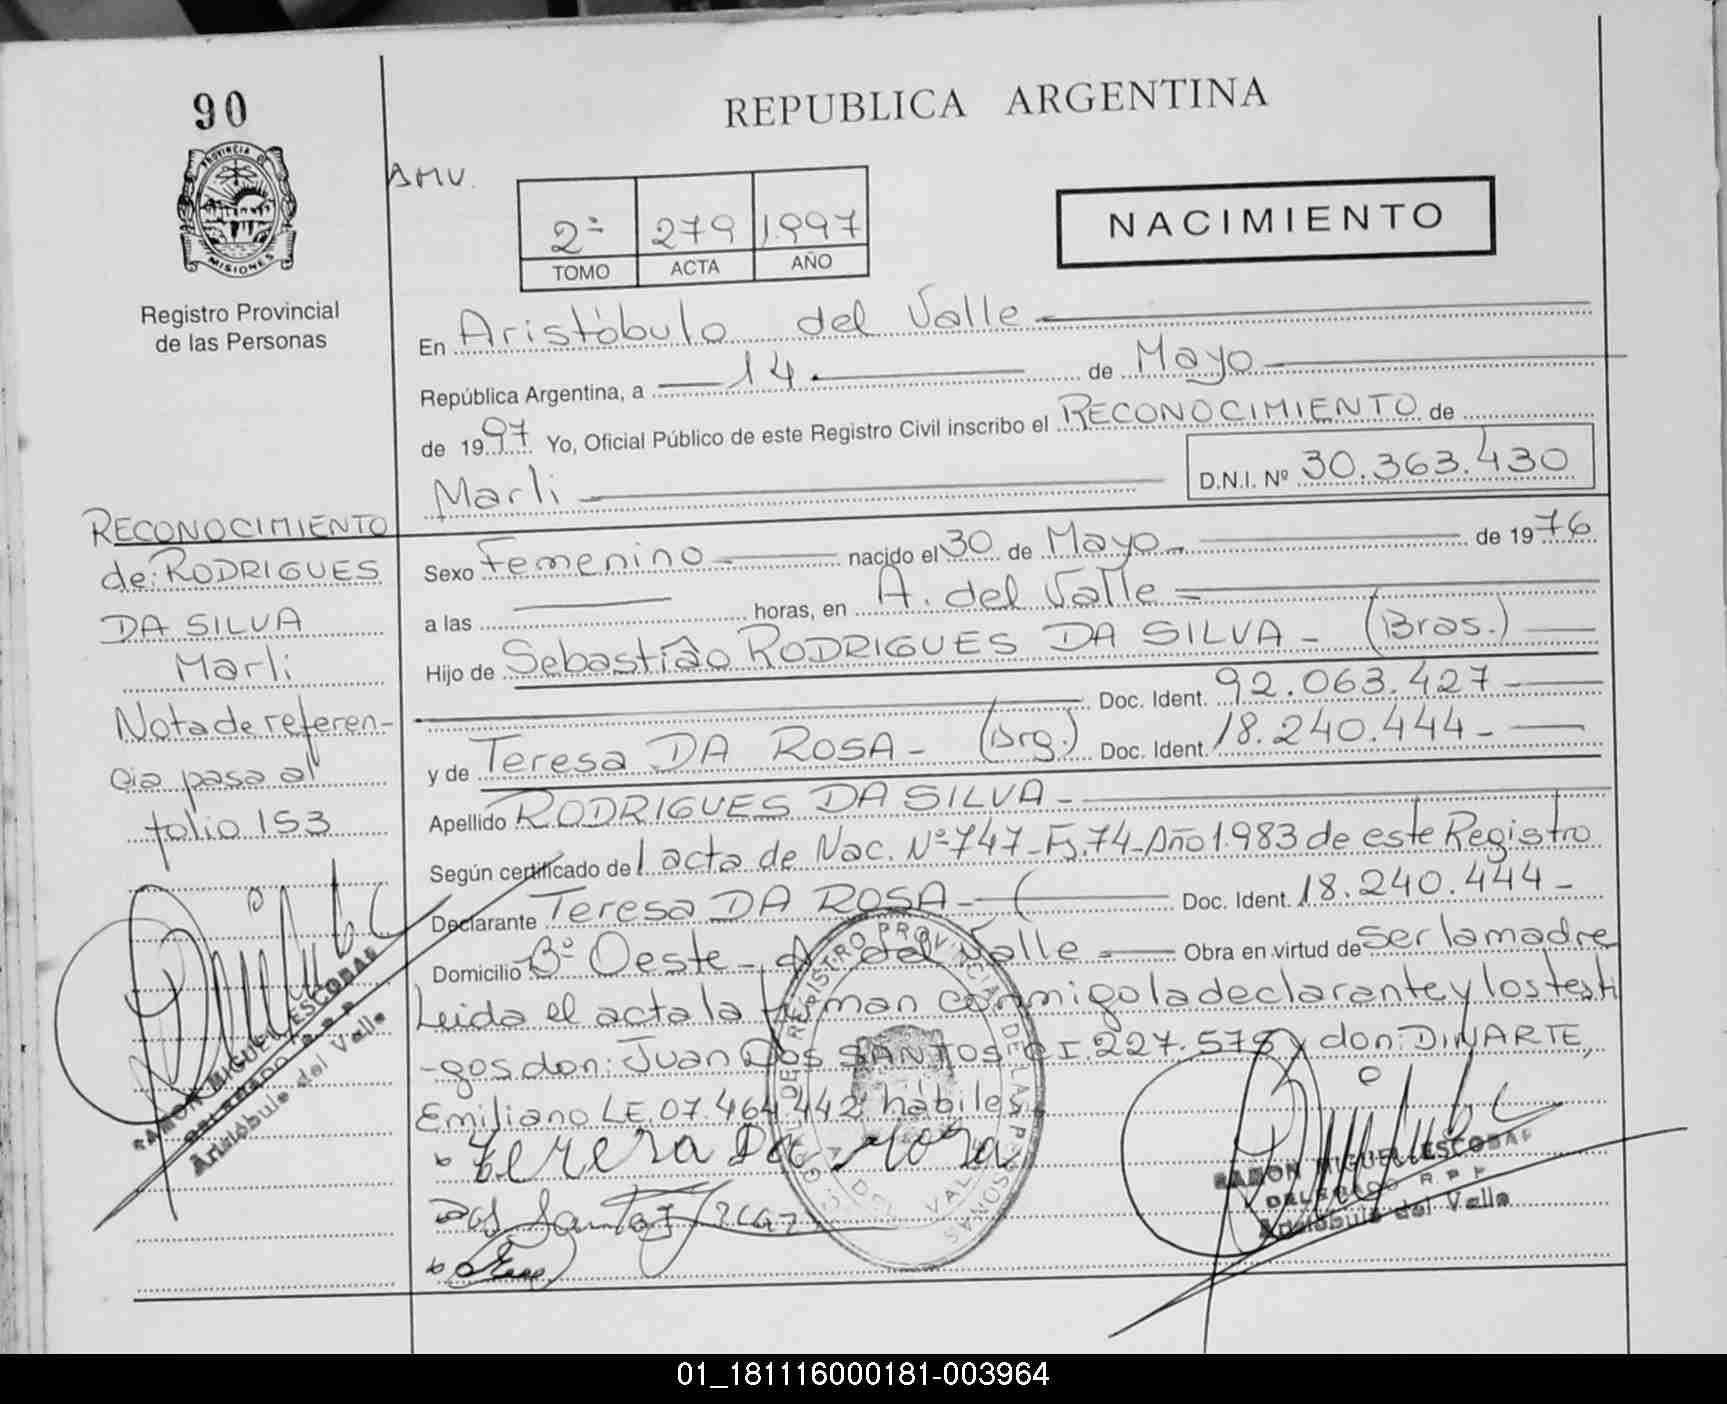 90
PROVINCIA DE
MISIONES
Registro Provincial
de las Personas
REPUBLICA ARGENTINA
AMV.
2º 279 1.997
TOMO ACTA AÑO
NACIMIENTO
En Aristóbulo del Valle
República Argentina, a 14 de Mayo
de 1997 Yo, Oficial Público de este Registro Civil inscribo el RECONOCIMIENTO de
Marli D.N.I. Nº 30.363.430
Sexo Femenino nacido el 30 de Mayo de 1976
a las horas, en A. del Valle
Hijo de Sebastiâo RODRIGUES DA SILVA - (Bras.)
Doc. Ident. 92.063.427
y de Teresa DA ROSA - (Arg.) Doc. Ident. 18.240.444
Apellido RODRIGUES DA SILVA -
Según certificado del acta de Nac. Nº 747_Fs.74_Año 1.983 de este Registro
Declarante Teresa DA ROSA - ( Doc. Ident. 18.240.444 -
Domicilio Bº Oeste - A. del Valle Obra en virtud de ser la madre
Leida el acta la firman conmigo la declarante y los testi
-gos don: Juan Dos SANTOS C I. 227.575 y don: DINARTE,
Emiliano L.E. 07.464.442 hábiles
Terera Da rosa
Dos Santos
RECONOCIMIENTO
de: RODRIGUES
DA SILVA
Marli
Nota de referen-
cia pasa al
folio 153
RAMON MIGUEL ESCOBAR
DELEGADO R.P.P
Aristóbulo del Valle
REGISTRO PROVINCIAL DE LAS PERSONAS
RAMON MIGUEL ESCOBAR
DELEGADO R.P.P
Aristóbulo del Valle
01_181116000181-003964